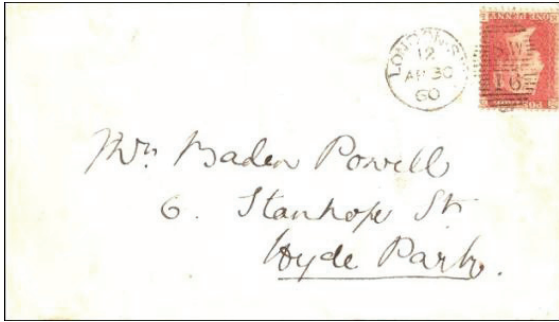 LONDON.S.W
12
AP 30
60
S.W
16
ONE PENNY
Mrs Baden Powell
6. Stanhope St.
Hyde Park.